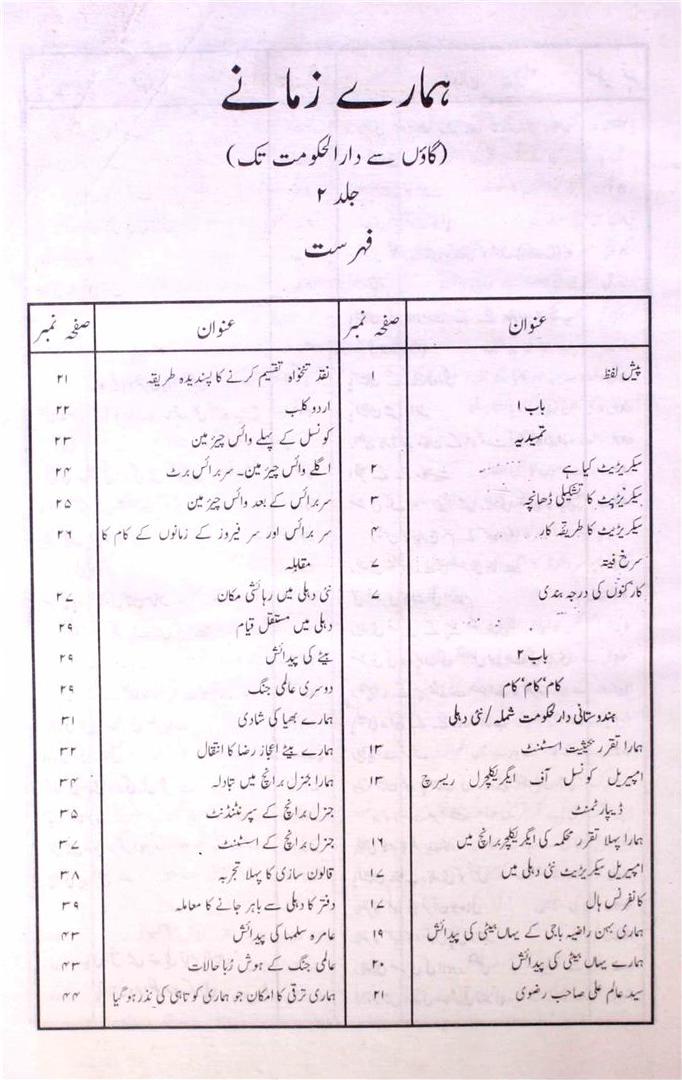 ہمارے زمانے
(گاؤں سے دارالحکومت تک)
جلد ۲
فہرست
عنوان صفحہ نمبر
پیش لفظ ۱
باب ۱
تمہیدیہ
سیکریٹریٹ کیا ہے ۲
سیکریٹریٹ کا تشکیلی ڈھانچہ ۳
سیکریٹریٹ کا طریقہ کار ۴
سرخ فیتہ ۷
کارکنوں کی درجہ بندی ۷
باب ۲
کام، کام، کام
ہندوستانی دارلحکومت شملہ/نئی دہلی
ہمارا تقرر بحیثیت اسسٹنٹ ۱۳
امپیریل کونسل آف ایگریکلچرل ریسرچ ۱۳
ڈیپارٹمنٹ
ہمارا پہلا تقرر محکمہ کی ایگریکلچر برانچ میں ۱۶
امپیریل سیکریٹریٹ نئی دہلی میں ۱۷
کانفرنس ہال ۱۷
ہماری بہن راضیہ باجی کے یہاں بیٹی کی پیدائش ۱۹
ہمارے یہاں بیٹی کی پیدائش ۲۰
سید عالم علی صاحب رضوی ۲۱
عنوان صفحہ نمبر
نقد تنخواہ تقسیم کرنے کا پسندیدہ طریقہ ۲۱
اردو کلب ۲۲
کونسل کے پہلے وائس چیئرمین ۲۳
اگلے وائس چیئرمین۔ سر برائس برٹ ۲۴
سر برائس کے بعد وائس چیئرمین ۲۵
سر برائس اور سر فیروز کے زمانوں کے کام کا ۲۶
مقابلہ
نئی دہلی میں رہائشی مکان ۲۷
دہلی میں مستقل قیام ۲۹
بیٹے کی پیدائش ۲۹
دوسری عالمی جنگ ۲۹
ہمارے بھیا کی شادی ۳۱
ہمارے بیٹے اعجاز رضا کا انتقال ۳۲
ہمارا جنرل برانچ میں تبادلہ ۳۴
جنرل برانچ کے سپرنٹنڈنٹ ۳۵
جنرل برانچ کے اسسٹنٹ ۳۷
قانون سازی کا پہلا تجربہ ۳۸
دفتر کا دہلی سے باہر جانے کا معاملہ ۳۹
عامرہ سلمہا کی پیدائش ۴۳
عالمی جنگ کے ہوش رُبا حالات ۴۳
ہماری ترقی کا امکان جو ہماری کوتاہی کی نذر ہو گیا ۴۴